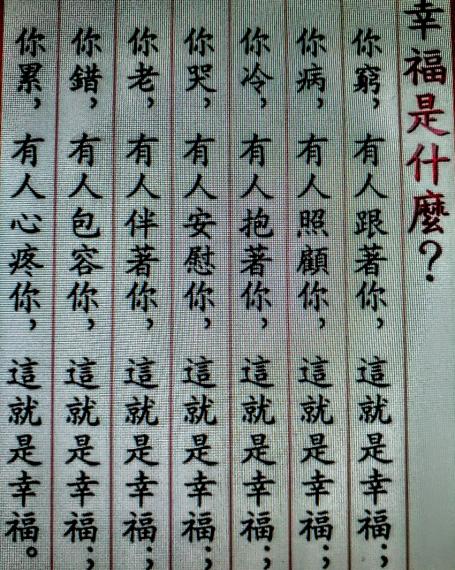 幸福是什麼？
你窮，有人跟著你，這就是幸福；
你病，有人照顧你，這就是幸福；
你冷，有人抱著你，這就是幸福；
你哭，有人安慰你，這就是幸福；
你老，有人伴著你，這就是幸福；
你錯，有人包容你，這就是幸福；
你累，有人心疼你，這就是幸福。